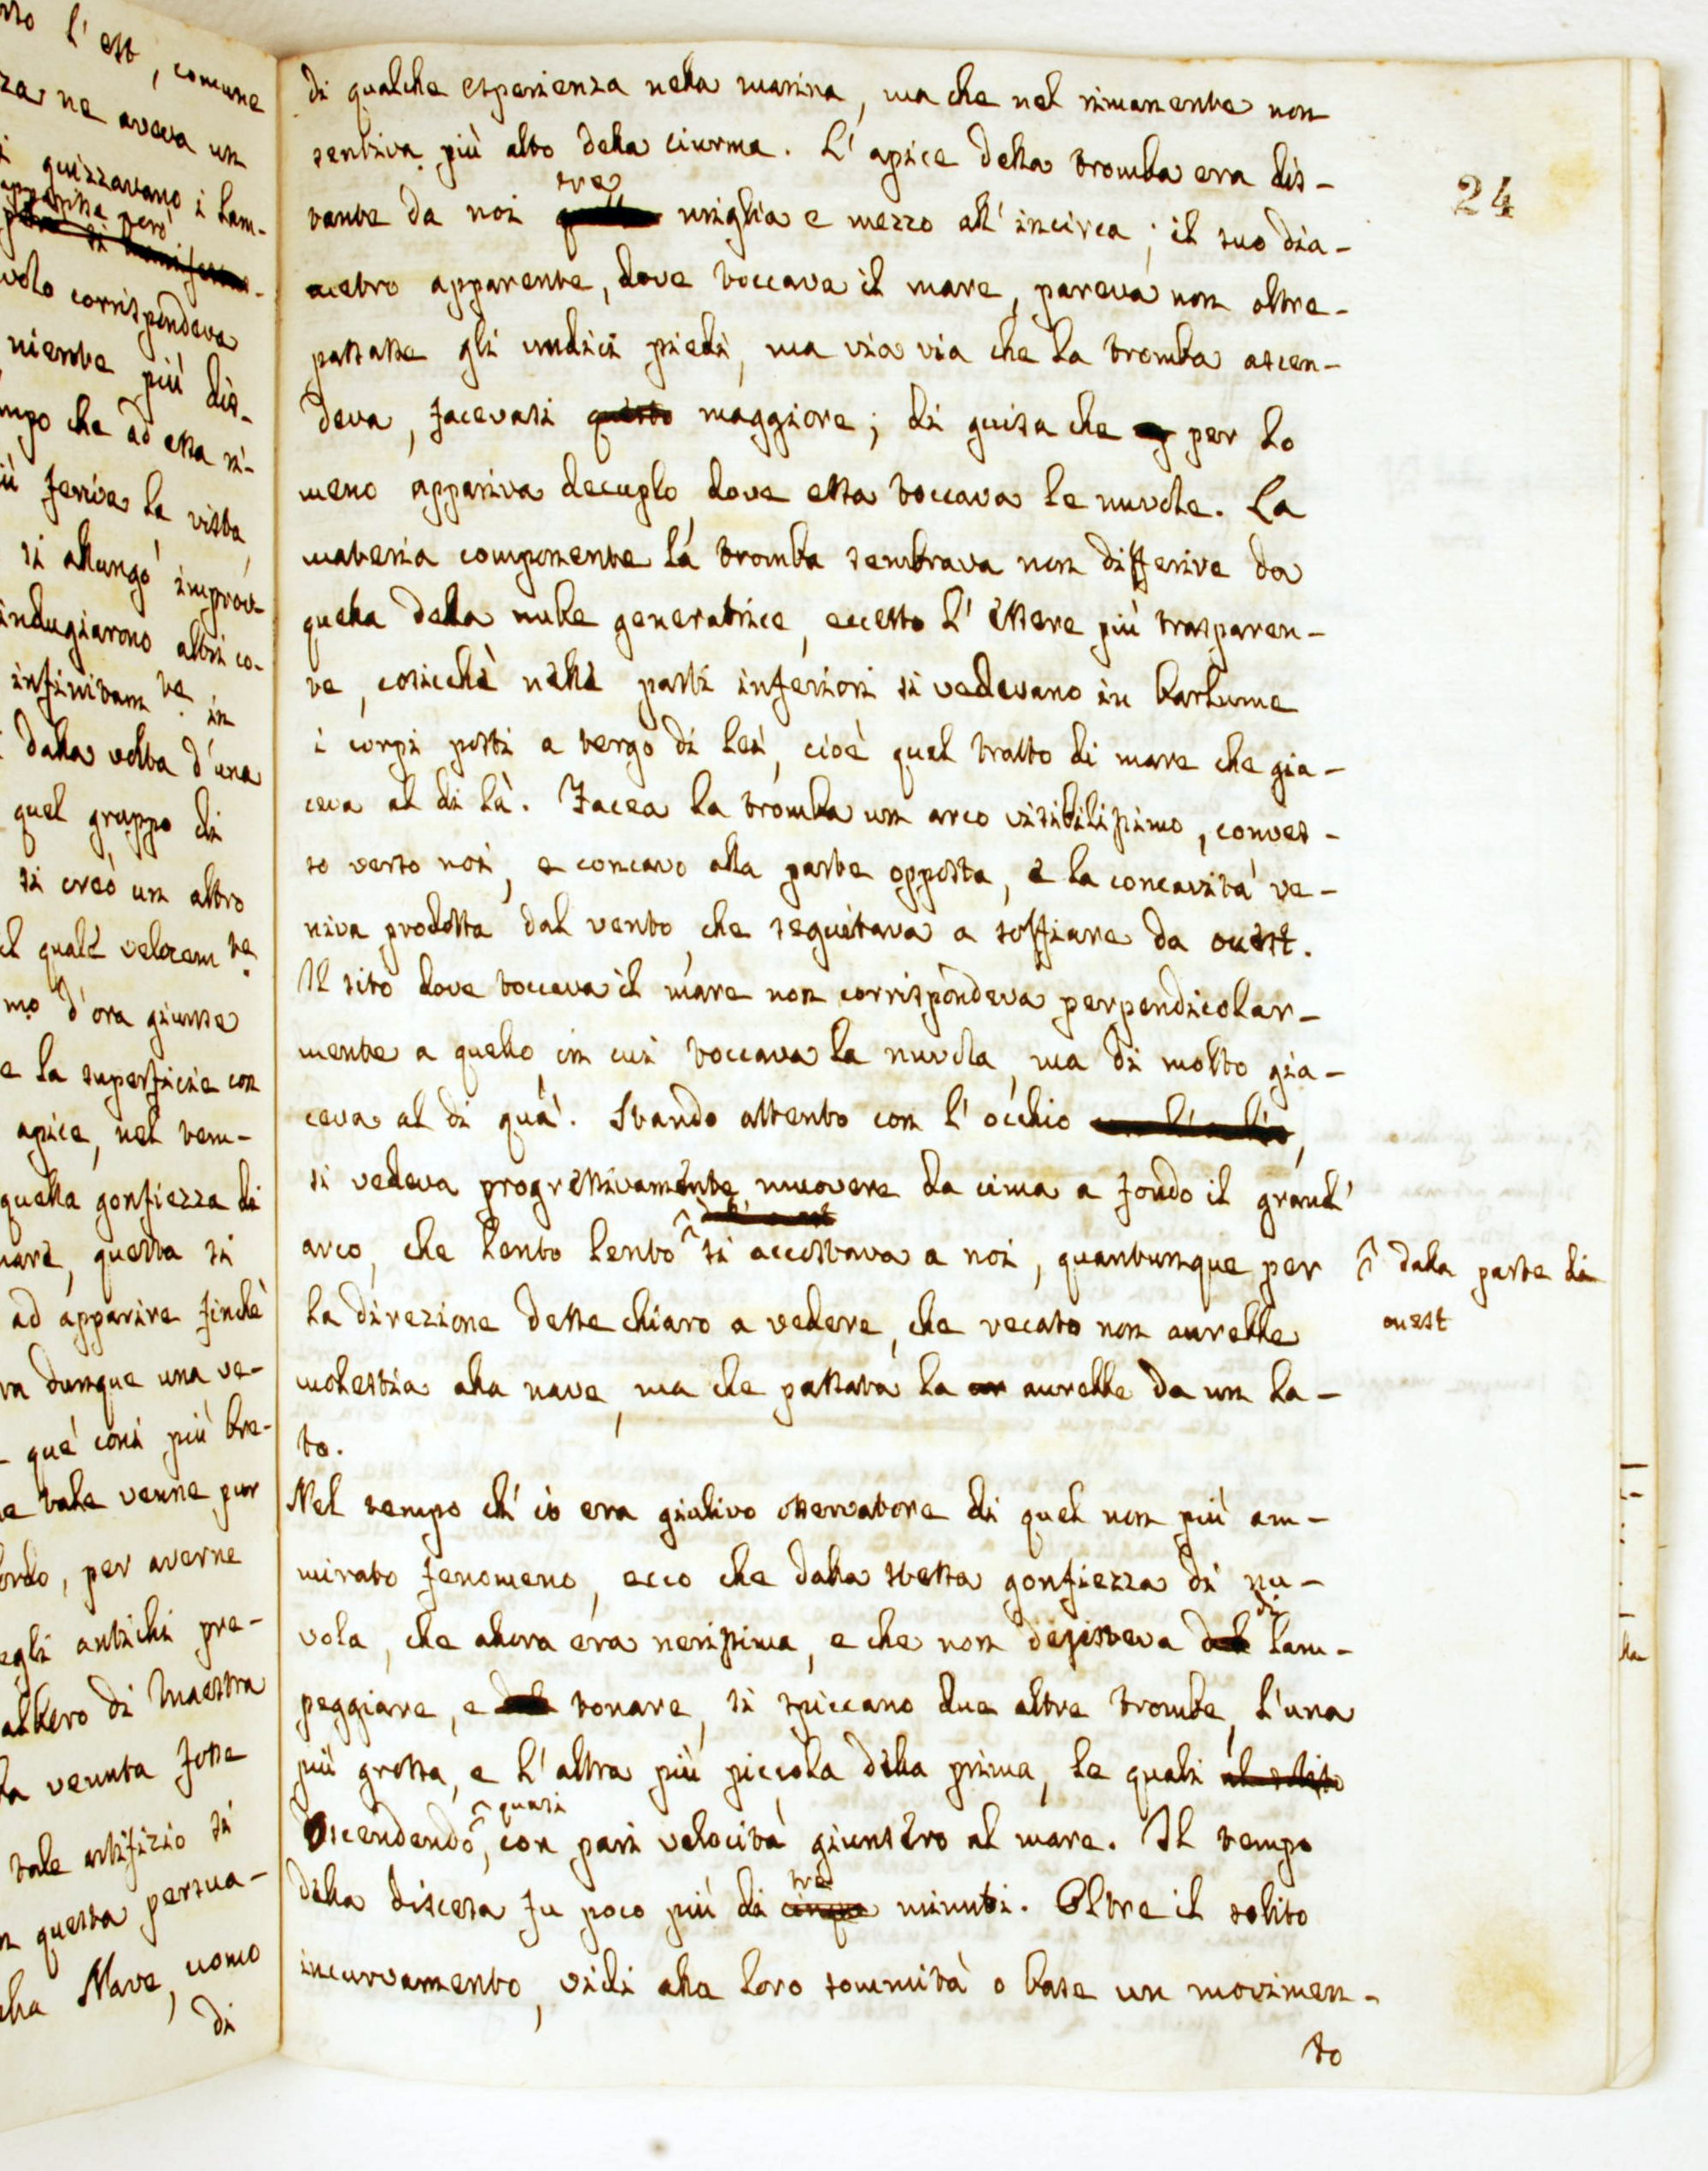 24
di qualche esperienza nella marina, ma che nel rimanente non
sentiva più alto della ciurma. L' apice della tromba era dis-
tre
tante da noi miglia e mezzo all' incirca; il suo dia-
metro apparente, dove toccava il mare, pareva non oltre-
passasse gli undici piedi, ma via via che la tromba ascen-
deva, facevasi questo maggiore; di guisa che per lo
meno appariva decuplo dove essa toccava le nuvole. La
materia componente la tromba sembrava non differire da
quella della nube generatrice, eccetto l' essere più trasparen-
te, cosicchè nelle parti inferiori si vedevano in barlume
i corpi posti a tergo di lei, cioè quel tratto di mare che gia-
ceva al di là. Facea la tromba un arco visibilissimo, conves-
so verso noi, e concavo alla parte opposta, e la concavità ve-
niva prodotta dal vento, che seguitava a soffiare da ouest.
Il sito dove toccava il mare non corrispondeva perpendicolar-
mente a quello, in cui toccava la nuvola, ma di molto gia-
ceva al di quà. Stando attento con l' occhio,
si vedeva progressivamente muovere da cima a fondo il grand'
arco, che lento lento ^ si accostava a noi, quantunque per
^ dalla parte di
ouest
la direzione desse chiaro a vedere, che recato non avrebbe
molestia alla nave, ma che passata la avrebbe da un la-
to.
Nel tempo ch' io era giulivo osservatore di quel non più am-
mirato fenomeno, ecco che dalla stessa gonfiezza di nu-
vola, che allora era nerissima, e che non desisteva di lam-
peggiare, e tonare, si spiccano due altre trombe, l'una
più grossa, e l' altra più piccola della prima, le quali al solito
^ quasi
Discendendo ^, con pari velocità giunsero al mare. Il tempo
tre
della discesa fu poco più di cinque minuti. Oltre il solito
incurvamento, vidi alla loro sommità o base un movimen-
to
l' est, comune
za ne aveva un
guizzavano i lam-
però
volo corrispondeva
niente più dis-
mpo che ad essa si-
più feriva la vista,
si allungò improv-
indugiarono altri co-
infinitam.te in
dalla volta d'una
quel gruppo di
si creò un altro
il quale velocem.te
mo d'ora giunse
e la superficie con
apice, nel tem-
quella gonfiezza di
mare, questa si
ad apparire finchè
va dunque una ve-
que' così più bre-
e tale venne pur
bordo, per averne
egli antichi pre-
albero di Maestra
la venuta fosse
tale artifizio si
n questa persua-
lla Nave, uomo
di